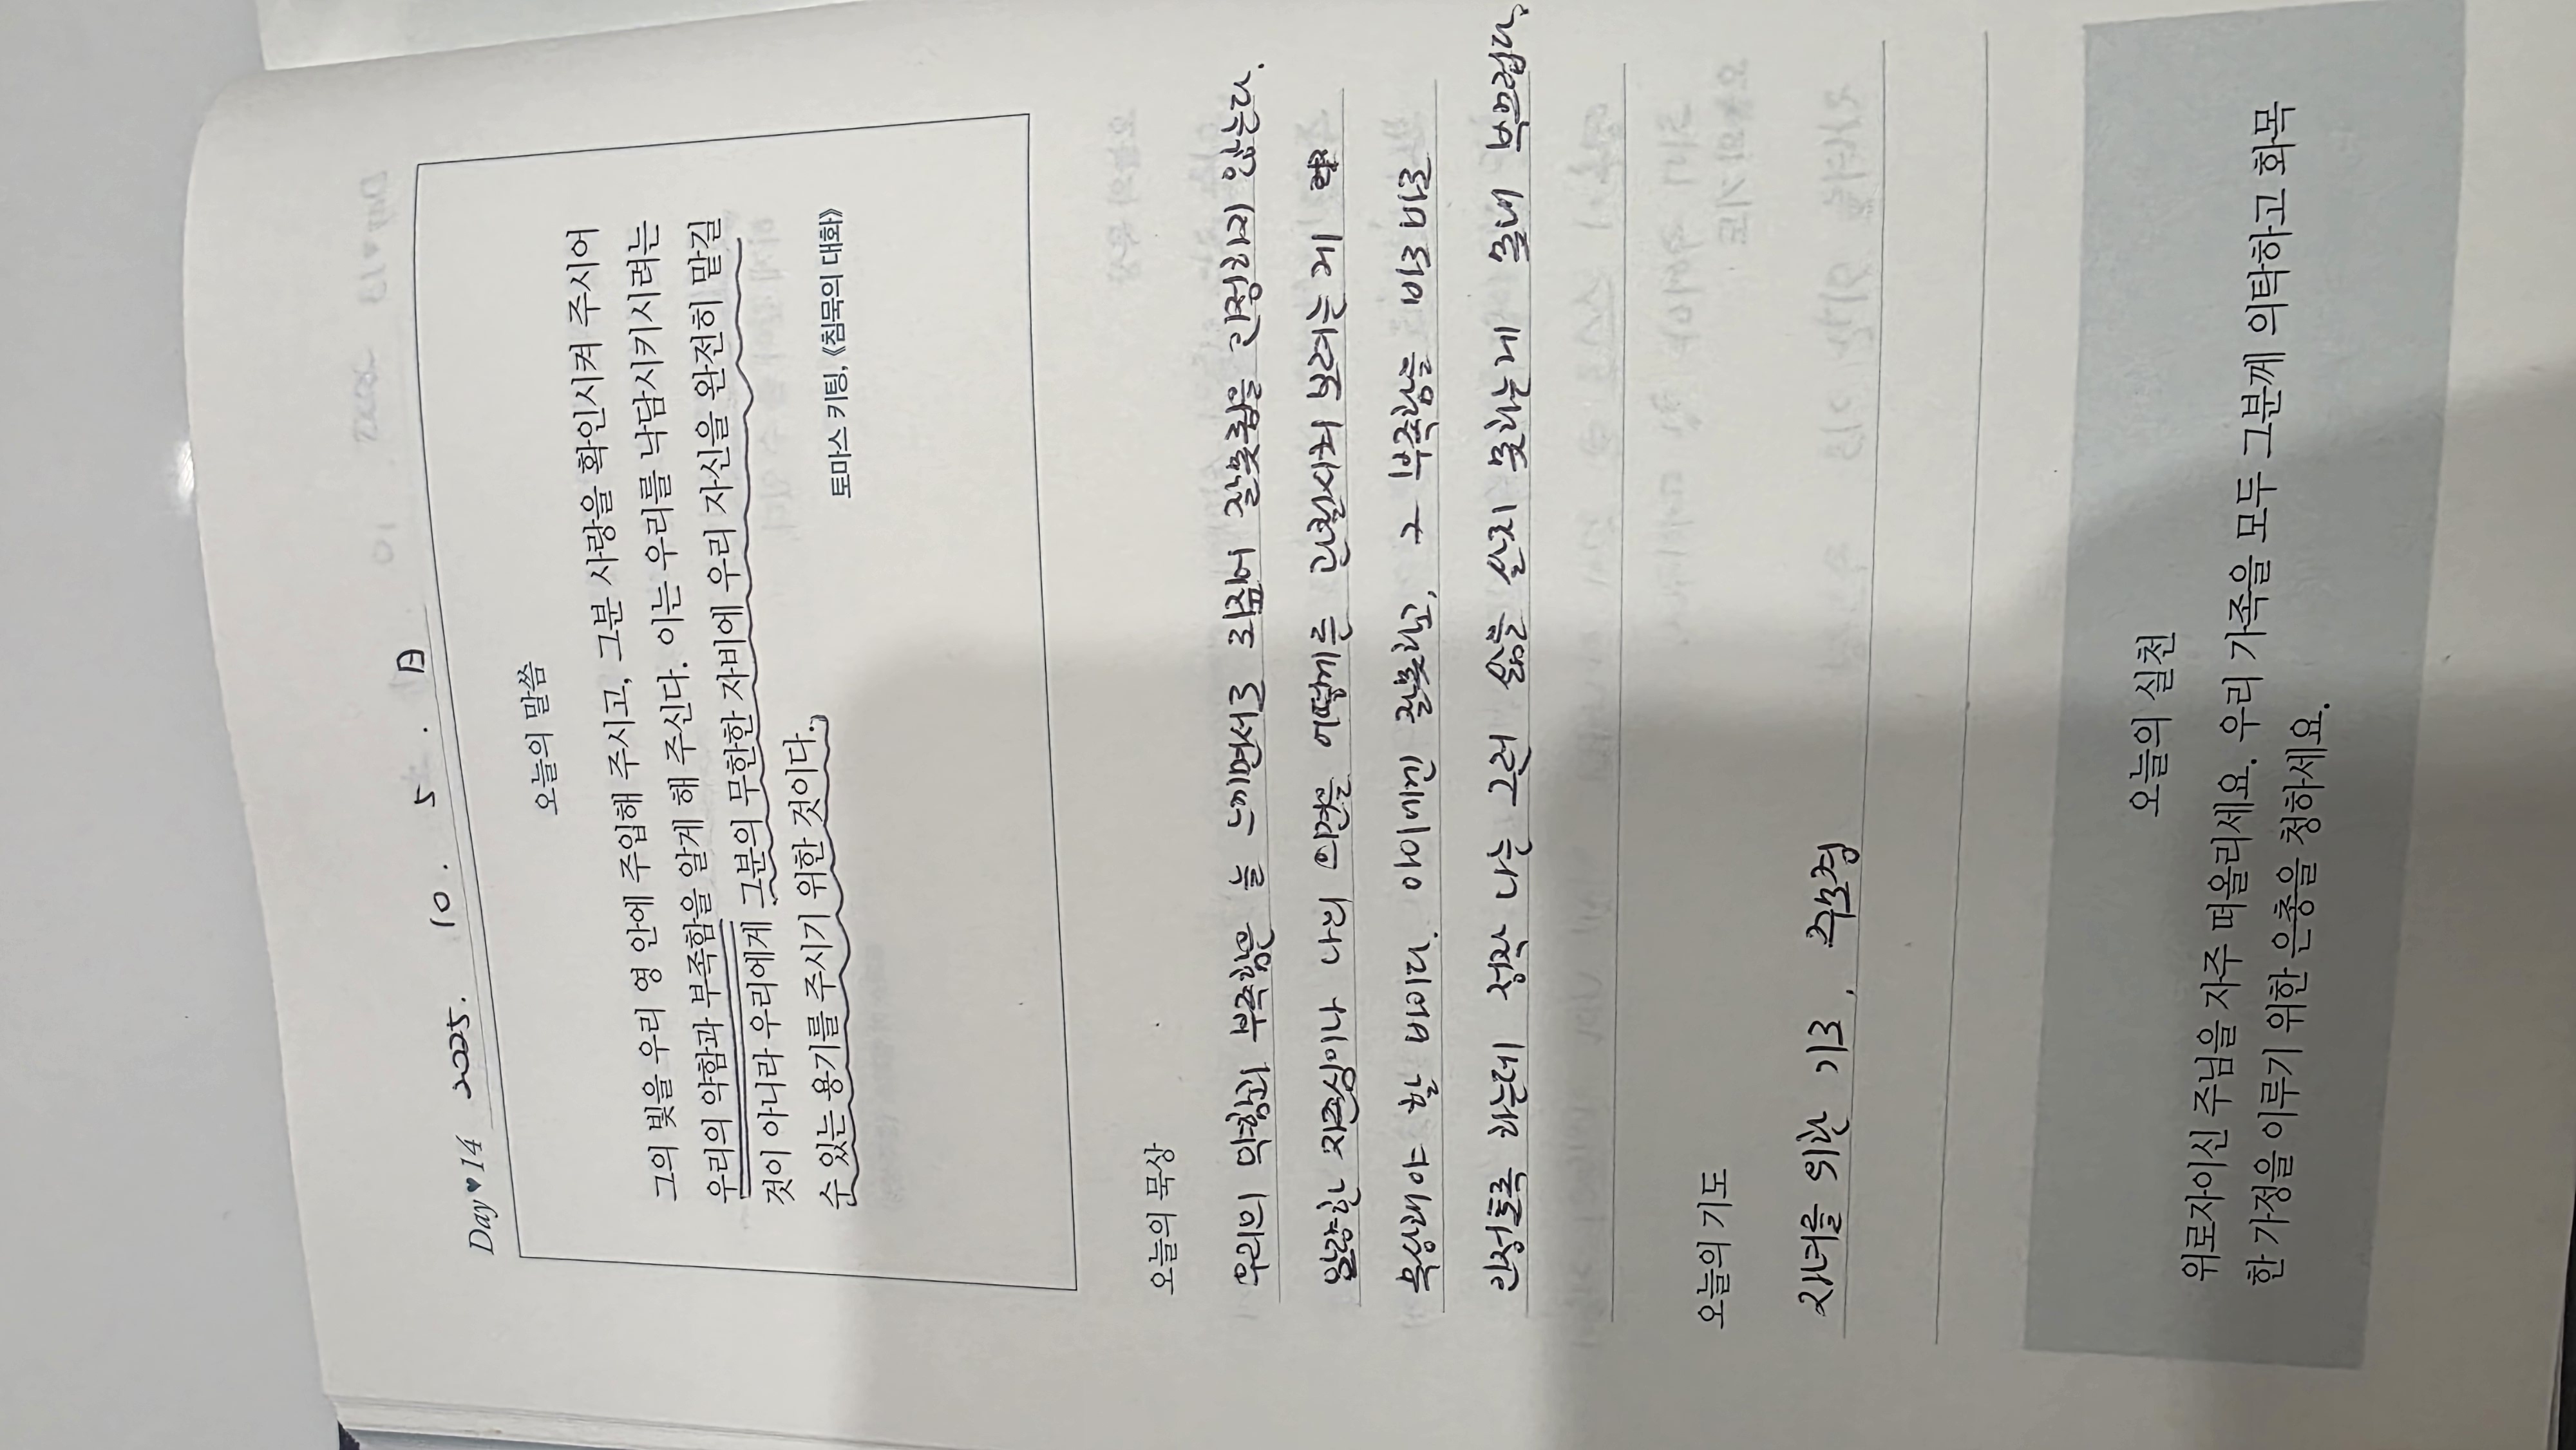 Day ♥ 14 2025. 10. 5. 日
오늘의 말씀
그의 빛을 우리 영 안에 주입해 주시고, 그분 사랑을 확인시켜 주시어
우리의 약함과 부족함을 알게 해 주신다. 이는 우리를 낙담시키시려는
것이 아니라 우리에게 그분의 무한한 자비에 우리 자신을 완전히 맡길
수 있는 용기를 주시기 위한 것이다.
토마스 키팅, 《침묵의 대화》
오늘의 묵상
우리의 약함과 부족함은 늘 느끼면서도 되짚어 잘못됨을 인정하지 않는다.
알량한 자존심이나 나의 의견을 어떻게든 관철시켜 보려는 게
묵상해야 할 바이다. 아이에겐 잘못하고, 그 부족함을 바로 바로
인정토록 하는데 정작 나는 그런 삶을 살지 못하는게 못내 부끄럽다.
오늘의 기도
자녀를 위한 기도, 주모경
오늘의 실천
위로자이신 주님을 자주 떠올리세요. 우리 가족을 모두 그분께 의탁하고 화목
한 가정을 이루기 위한 은총을 청하세요.